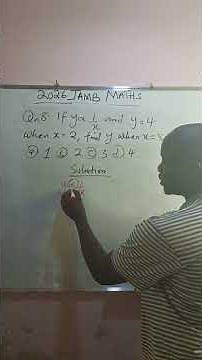 2026 JAMB MATHS
Qn8. If y α 1/x and y = 4
when x = 2, find y when x =
a) 1 b) 2 c) 3 d) 4
Solution